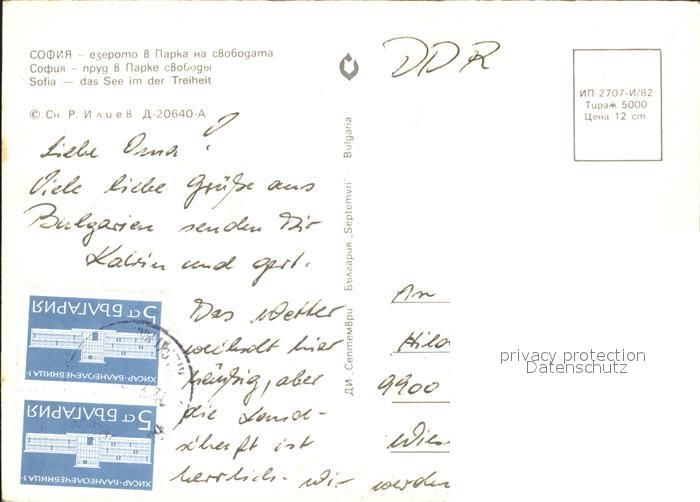 СОФИЯ – езерото в Парка на свободата
София – пруд в Парке свободы
Sofia — das See im der Treiheit
© Сн. Р. Илиев Д-20640-А
DDR
ИП-2707-И/82
Тираж 5000
Цена 12 ст.
Liebe Oma!
Viele liebe Grüße aus
Bulgarien senden Dir
Katrin und Gert.
Das Wetter
wechselt hier
häufig, aber
die Land-
schaft ist
herrlich. Wir werden
ДИ „Септември“ България „Septemvri“ - Bulgaria
An
9900
privacy protection
Datenschutz
5 СТ БЪЛГАРИЯ
ХИСАР-БАЛНЕОЛЕЧЕБНИЦА-1
5 СТ БЪЛГАРИЯ
ХИСАР-БАЛНЕОЛЕЧЕБНИЦА-1